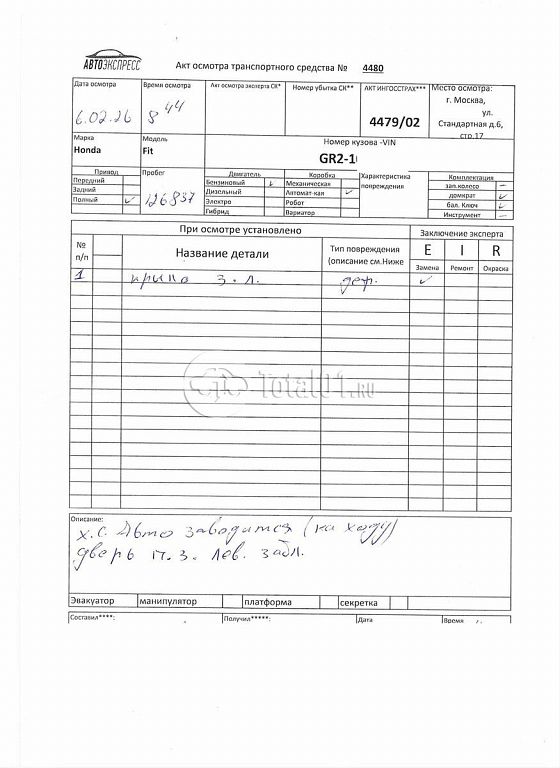 АВТОЭКСПРЕСС
Акт осмотра транспортного средства № 4480
Дата осмотра Время осмотра Акт осмотра эксперта СК* Номер убытка СК** АКТ ИНГОССТРАХ*** Место осмотра:
г. Москва,
ул.
Стандартная д.6,
стр.17
6.02.26 8 44 4479/02
Марка Модель Номер кузова -VIN
Honda Fit GR2-1
Привод Пробег Двигатель Коробка Характеристика повреждения Комплектация
Передний Бензиновый Механическая зап.колесо —
Задний Дизельный Автомат-кая ✓ домкрат ✓
Полный ✓ 126837 Электро Робот бал. Ключ ✓
Гибрид Вариатор Инструмент —
При осмотре установлено Заключение эксперта
№ п/п Название детали Тип повреждения (описание см.Ниже E I R
Замена Ремонт Окраска
1 крыло з.л. деф. ✓
Total01.RU
Описание:
х.с. Авто заводится (на ходу)
дверь п.з. лев. забл.
Эвакуатор манипулятор платформа секретка
Составил****: Получил*****: Дата Время